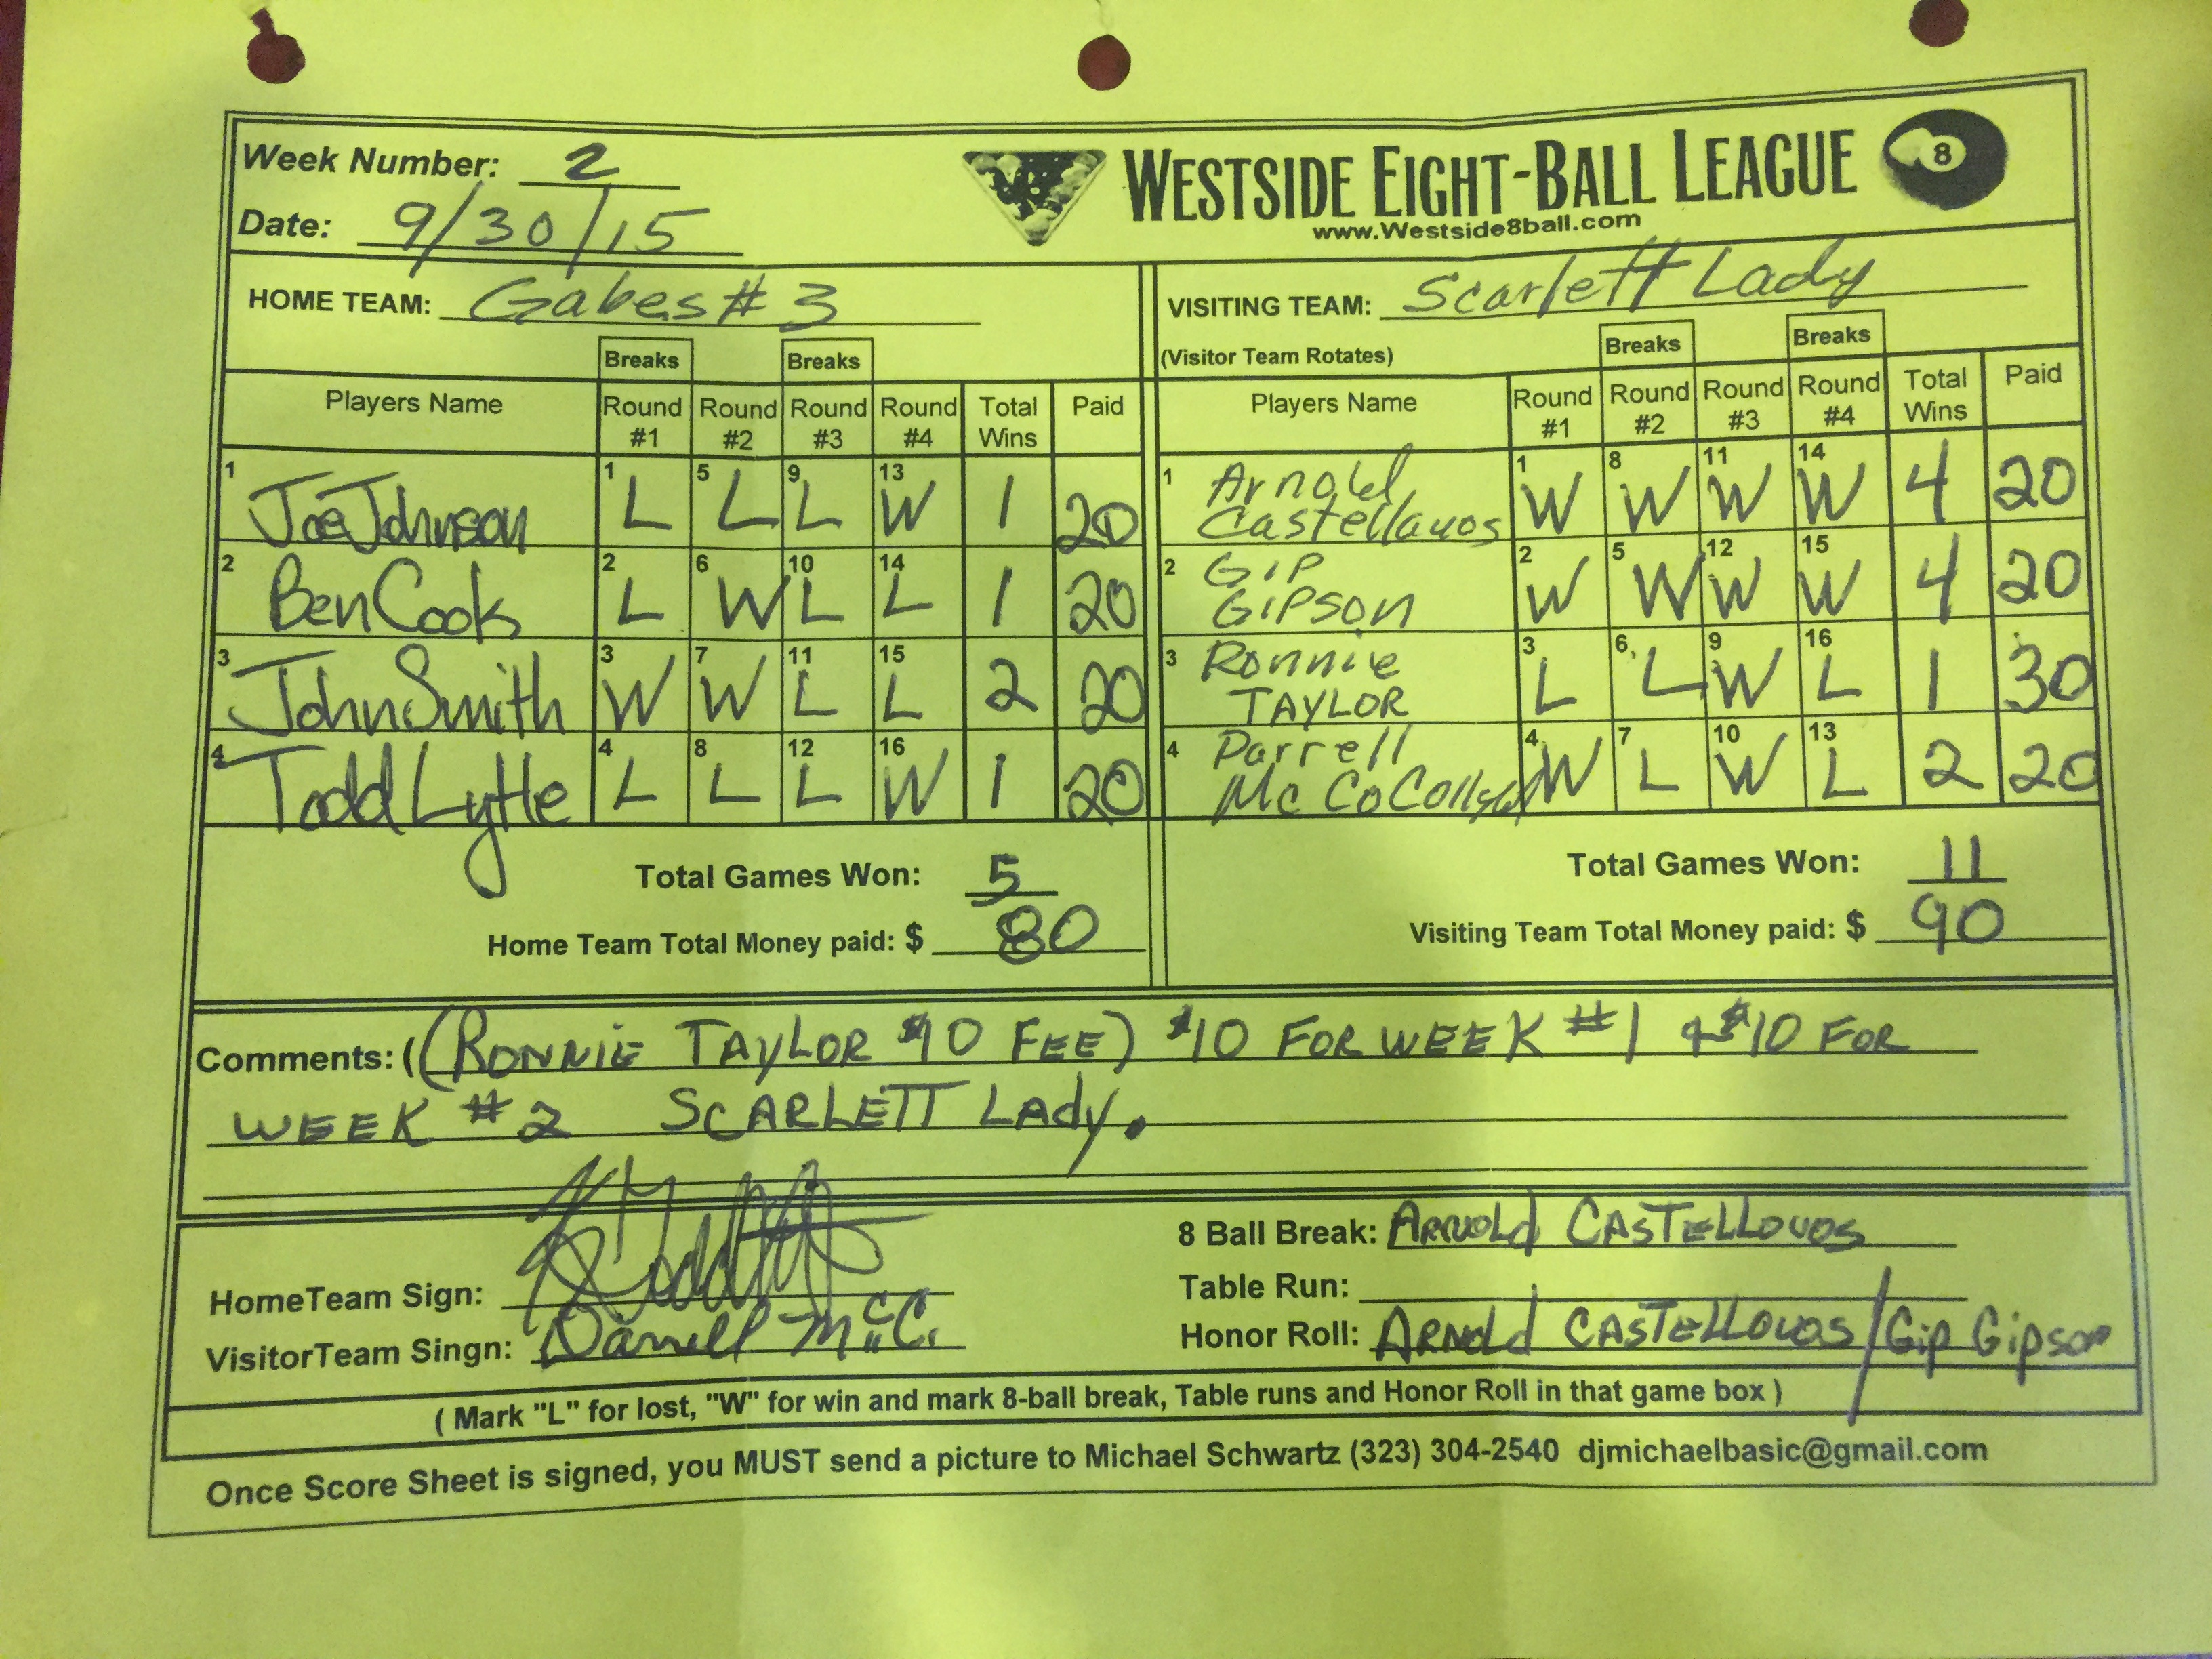 Week Number: 2
WESTSIDE EIGHT-BALL LEAGUE 8
www.Westside8ball.com
Date: 9/30/15
HOME TEAM: Gabes #3
VISITING TEAM: Scarlett Lady
(Visitor Team Rotates)
Breaks Breaks Breaks Breaks
Players Name Round #1 Round #2 Round #3 Round #4 Total Wins Paid
Players Name Round #1 Round #2 Round #3 Round #4 Total Wins Paid
1 Joe Johnson 1 L 5 L 9 L 13 W 1 20
1 Arnold Castellanos 1 W 8 W 11 W 14 W 4 20
2 Ben Cook 2 L 6 W 10 L 14 L 1 20
2 GIP GIPSON 2 W 5 W 12 W 15 W 4 20
3 John Smith 3 W 7 W 11 L 15 L 2 20
3 Ronnie TAYLOR 3 L 6 L 9 W 16 L 1 30
4 Todd Lytle 4 L 8 L 12 L 16 W 1 20
4 Darrell Mc 4 W 7 L 10 W 13 L 2 20
Total Games Won: 5
Total Games Won: 11
Home Team Total Money paid: $ 80
Visiting Team Total Money paid: $ 90
Comments: ((RONNIE TAYLOR $10 FEE) $10 FOR WEEK #1 & $10 FOR
WEEK #2 SCARLETT LADY.
HomeTeam Sign:
VisitorTeam Singn: Darrell McC.
8 Ball Break: ARNOLD CASTELLOUOS
Table Run:
Honor Roll: ARNOLD CASTELLOUOS / Gip Gipson
( Mark "L" for lost, "W" for win and mark 8-ball break, Table runs and Honor Roll in that game box )
Once Score Sheet is signed, you MUST send a picture to Michael Schwartz (323) 304-2540 djmichaelbasic@gmail.com